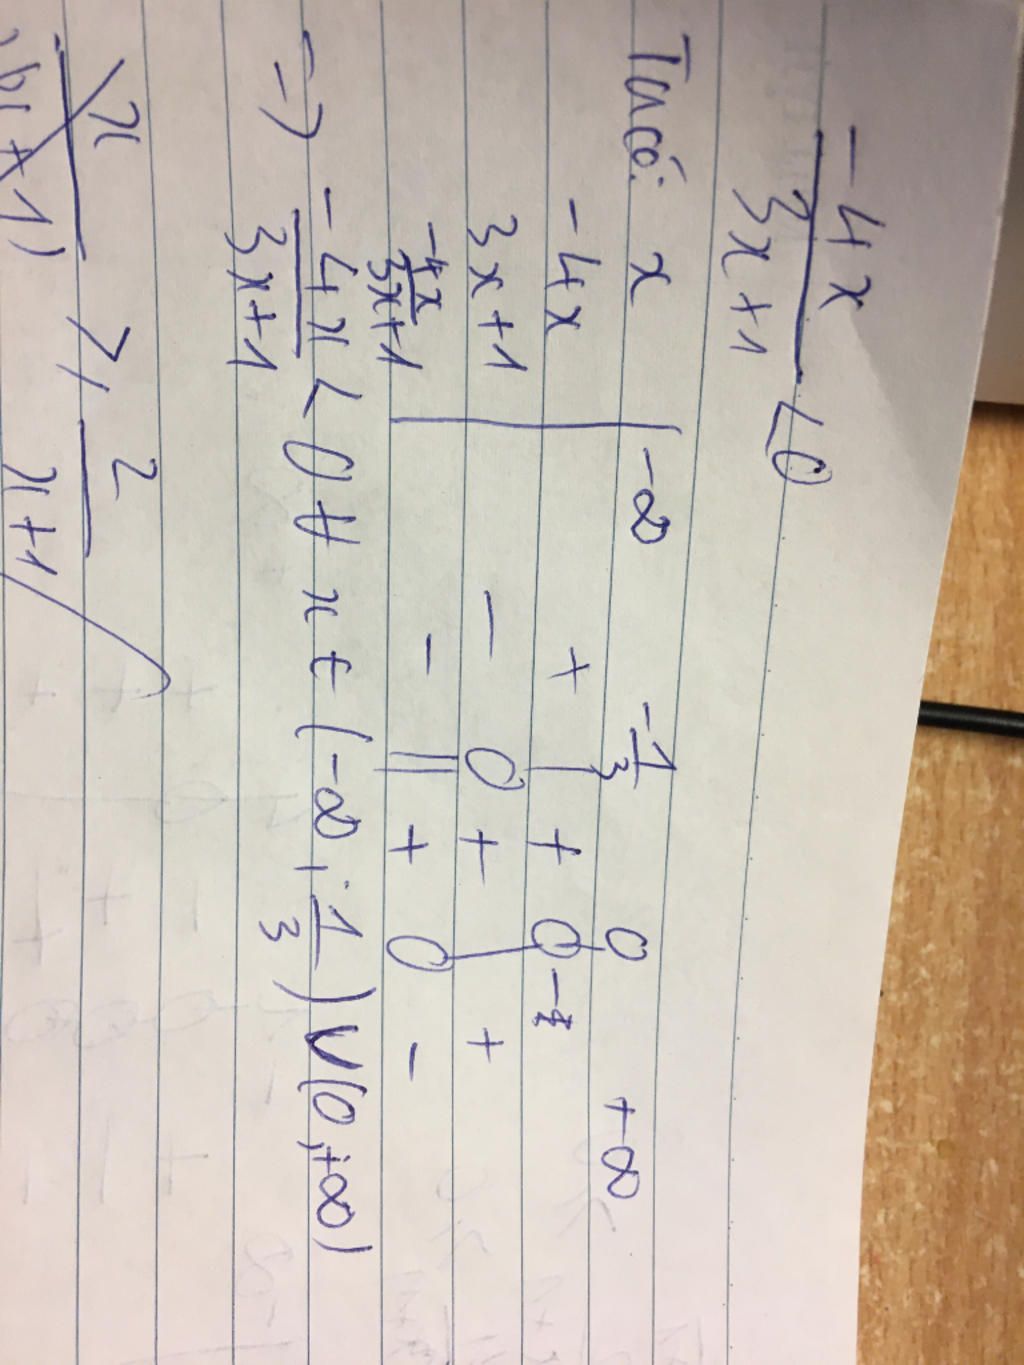 -4x
3x+1 <0
Ta có: x -∞ -1/3 0 +∞
-4x + | + 0 -
3x+1 - 0 + | +
-4x/3x+1 - || + 0 -
=> -4x/3x+1 < 0 ∀ x ∈ (-∞, -1/3) ∪ (0, +∞)
x 2
x+1